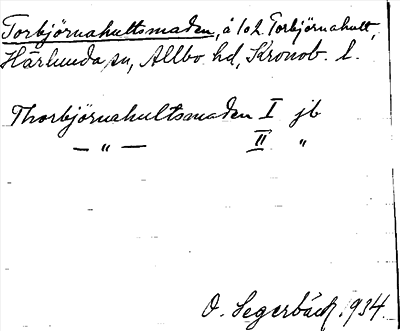 Torbjörnahultsmaden, å 1o2 Torbjörnahult,
Härlunda sn, Allbo hd, Kronob. l.
Thorbjörnahultsmaden I jb
— „ — II „
O. Segerbäck. 934.